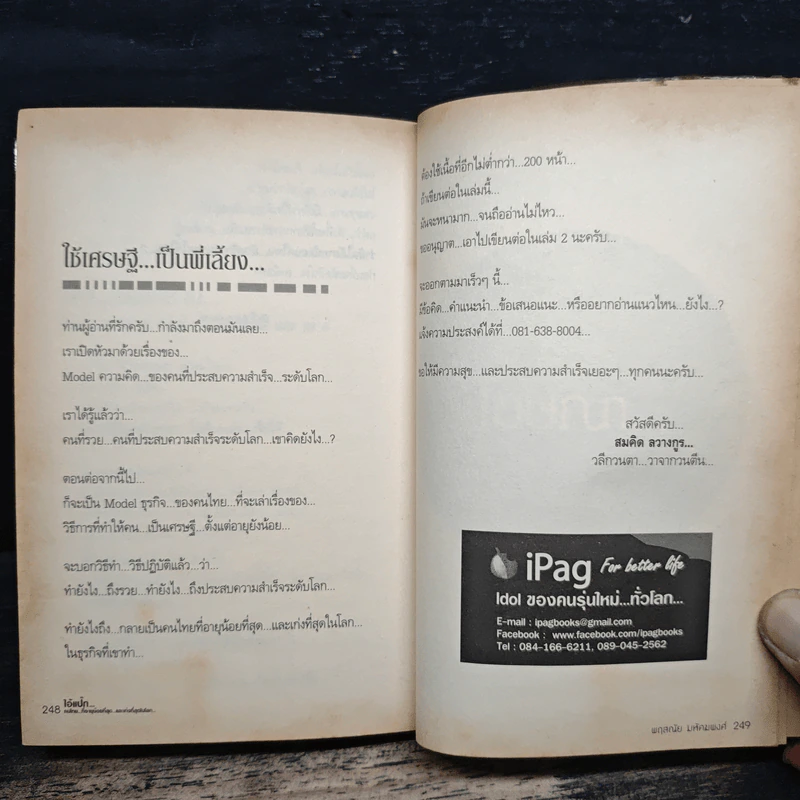 ใช้เศรษฐี...เป็นพี่เลี้ยง...
ท่านผู้อ่านที่รักครับ...กำลังมาถึงตอนมันเลย...
เราเปิดหัวมาด้วยเรื่องของ...
Model ความคิด...ของคนที่ประสบความสำเร็จ...ระดับโลก...
เราได้รู้แล้วว่า...
คนที่รวย...คนที่ประสบความสำเร็จระดับโลก...เขาคิดยังไง...?
ตอนต่อจากนี้ไป...
ก็จะเป็น Model ธุรกิจ...ของคนไทย...ที่จะเล่าเรื่องของ...
วิธีการที่ทำให้คน...เป็นเศรษฐี...ตั้งแต่อายุยังน้อย...
จะบอกวิธีทำ...วิธีปฏิบัติแล้ว...ว่า...
ทำยังไง...ถึงรวย...ทำยังไง...ถึงประสบความสำเร็จระดับโลก...
ทำยังไงถึง...กลายเป็นคนไทยที่อายุน้อยที่สุด...และเก่งที่สุดในโลก...
ในธุรกิจที่เขาทำ...
248 ไอ้แป๊ก...
ต้องใช้เนื้อที่อีกไม่ต่ำกว่า...200 หน้า...
ถ้าเขียนต่อในเล่มนี้...
มันจะหนามาก...จนถืออ่านไม่ไหว...
ขออนุญาต...เอาไปเขียนต่อในเล่ม 2 นะครับ...
จะออกตามมาเร็วๆ นี้...
มีข้อคิด...คำแนะนำ...ข้อเสนอแนะ...หรืออยากอ่านแนวไหน...ยังไง...?
แจ้งความประสงค์ได้ที่...081-638-8004...
ขอให้มีความสุข...และประสบความสำเร็จเยอะๆ...ทุกคนนะครับ...
สวัสดีครับ...
สมคิด ลวางกูร...
วลีกวนตา...วาจากวนตีน...
iPag For better life
Idol ของคนรุ่นใหม่...ทั่วโลก...
E-mail : ipagbooks@gmail.com
Facebook : www.facebook.com/ipagbooks
Tel : 084-166-6211, 089-045-2562
249